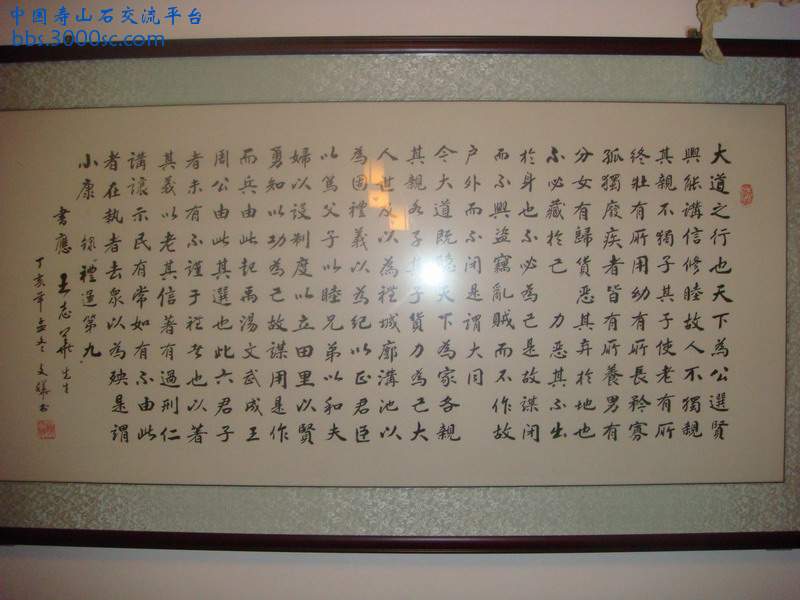 中国寿山石交流平台
bbs.3000sc.com
大道之行也天下為公選賢
與能講信修睦故人不獨親
其親不獨子其子使老有所
終壯有所用幼有所長矜寡
孤獨廢疾者皆有所養男有
分女有歸貨惡其弃於地也
不必藏於己 力惡其不出
於身也不必為己是故謀閉
而不興盜竊亂賊而不作故
户外而不闭是謂大同
今大道既隱天下為家各親
其親各子其子貨力為己大
人世及以為禮城廓溝池以
為固禮義以為紀以正君臣
以篤父子以睦兄弟以和夫
婦以設制度以立田里以賢
勇知以功為己故謀用是作
而兵由此起禹湯文武成王
周公由此其選也此六君子
者未有不謹于禮者也以著
其義以考其信著有過刑仁
講讓示民有常如有不由此
者在執者去衆以為殃是謂
小康 錄禮運第九
書應 王志華先生
丁亥年孟冬文書